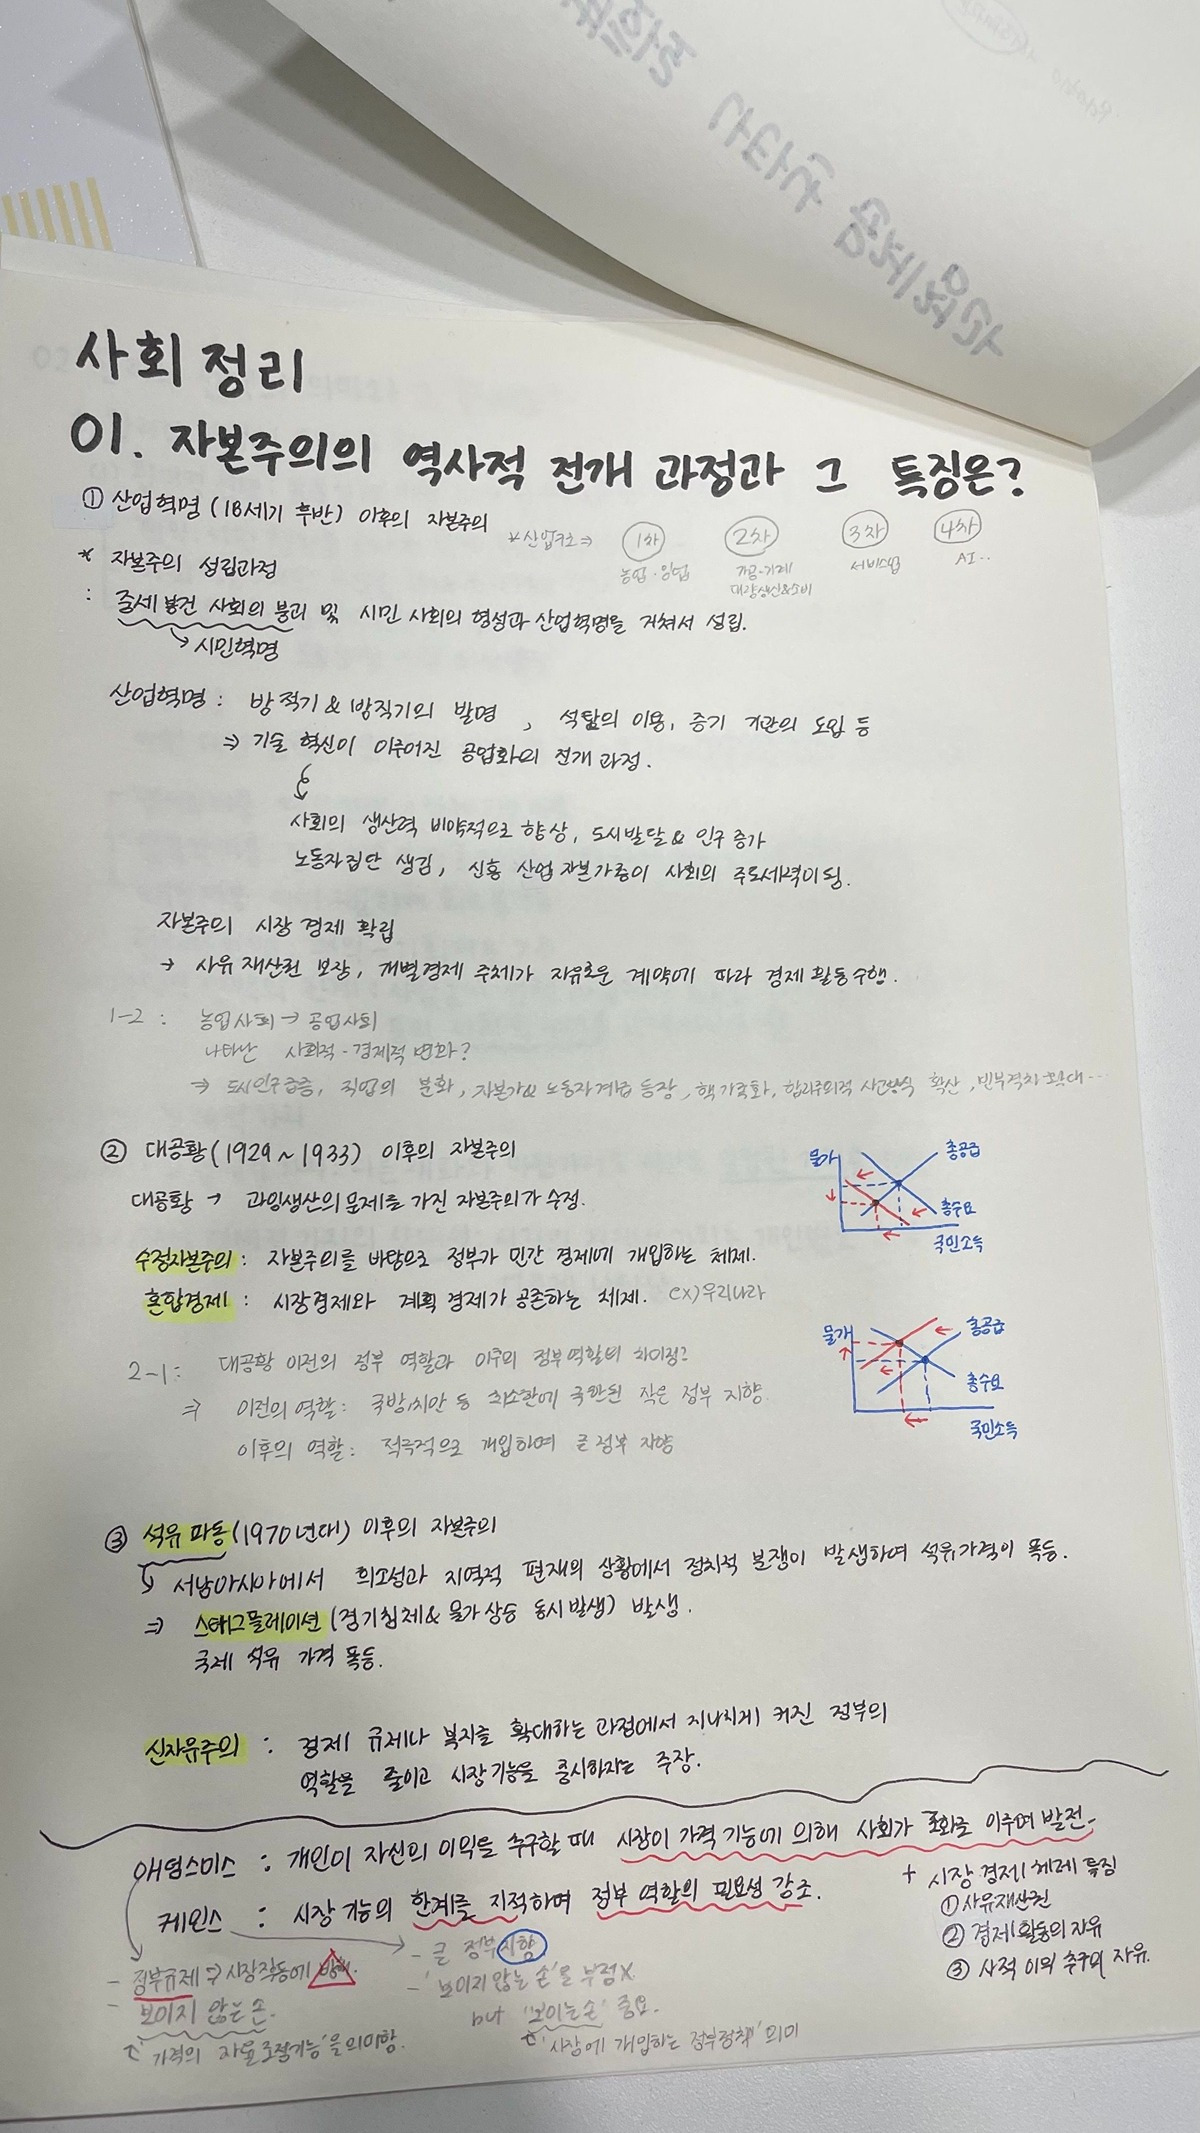 사회 정리
01. 자본주의의 역사적 전개 과정과 그 특징은?
① 산업혁명 (18세기 후반) 이후의 자본주의
*산업구조⇒ 1차 2차 3차 4차
농업·임업 가공·기계 서비스업 AI··
대량생산&소비
* 자본주의 성립과정
: 중세 봉건 사회의 붕괴 및 시민 사회의 형성과 산업혁명을 거쳐서 성립.
→시민혁명
산업혁명 : 방적기 & 방직기의 발명 , 석탄의 이용, 증기 기관의 도입 등
⇒ 기술 혁신이 이루어진 공업화의 전개 과정.
사회의 생산력 비약적으로 향상, 도시발달 & 인구 증가
노동자집단 생김, 신흥 산업 자본가층이 사회의 주도세력이 됨.
자본주의 시장 경제 확립
→ 사유 재산권 보장, 개별경제 주체가 자유로운 계약에 따라 경제 활동 수행.
1-2 : 농업사회 → 공업사회
나타난 사회적·경제적 변화?
⇒ 도시인구급증, 직업의 분화, 자본가& 노동자계급 등장, 핵가족화, 합리주의적 사고방식 확산, 빈부격차 확대···
② 대공황(1929 ~ 1933) 이후의 자본주의
대공황 → 과잉생산의 문제를 가진 자본주의가 수정.
수정자본주의 : 자본주의를 바탕으로 정부가 민간 경제에 개입하는 체제.
혼합경제 : 시장경제와 계획 경제가 공존하는 체제. ex)우리나라
물가 총공급
총수요
국민소득
2-1 : 대공황 이전의 정부 역할과 이후의 정부역할의 차이점?
⇒ 이전의 역할 : 국방,치안 등 최소한에 국한된 작은 정부 지향.
이후의 역할 : 적극적으로 개입하여 큰 정부 지향
물가 총공급
총수요
국민소득
③ 석유 파동(1970년대) 이후의 자본주의
↳ 서남아시아에서 희소성과 지역적 편재의 상황에서 정치적 불쟁이 발생하여 석유가격이 폭등.
⇒ 스태그플레이션 (경기침체& 물가상승 동시 발생) 발생.
국제 석유 가격 폭등.
신자유주의 : 경제 규제나 복지를 확대하는 과정에서 지나치게 커진 정부의
역할을 줄이고 시장기능을 중시하자는 주장.
애덤스미스 : 개인이 자신의 이익을 추구할 때 시장이 가격 기능에 의해 사회가 조화를 이루며 발전.
케인스 : 시장 기능의 한계를 지적하며 정부 역할의 필요성 강조.
+ 시장 경제 체제 특징
① 사유재산권
② 경제활동의 자유
③ 사적 이익 추구의 자유.
- 정부규제 ⇒ 시장작동에 방해.
- 보이지 않는 손.
↳ '가격의 자율조절기능'을 의미함.
- 큰 정부 지향
- '보이지 않는 손'을 부정X.
but '보이는 손' 중요.
↳ '시장에 개입하는 정부정책' 의미